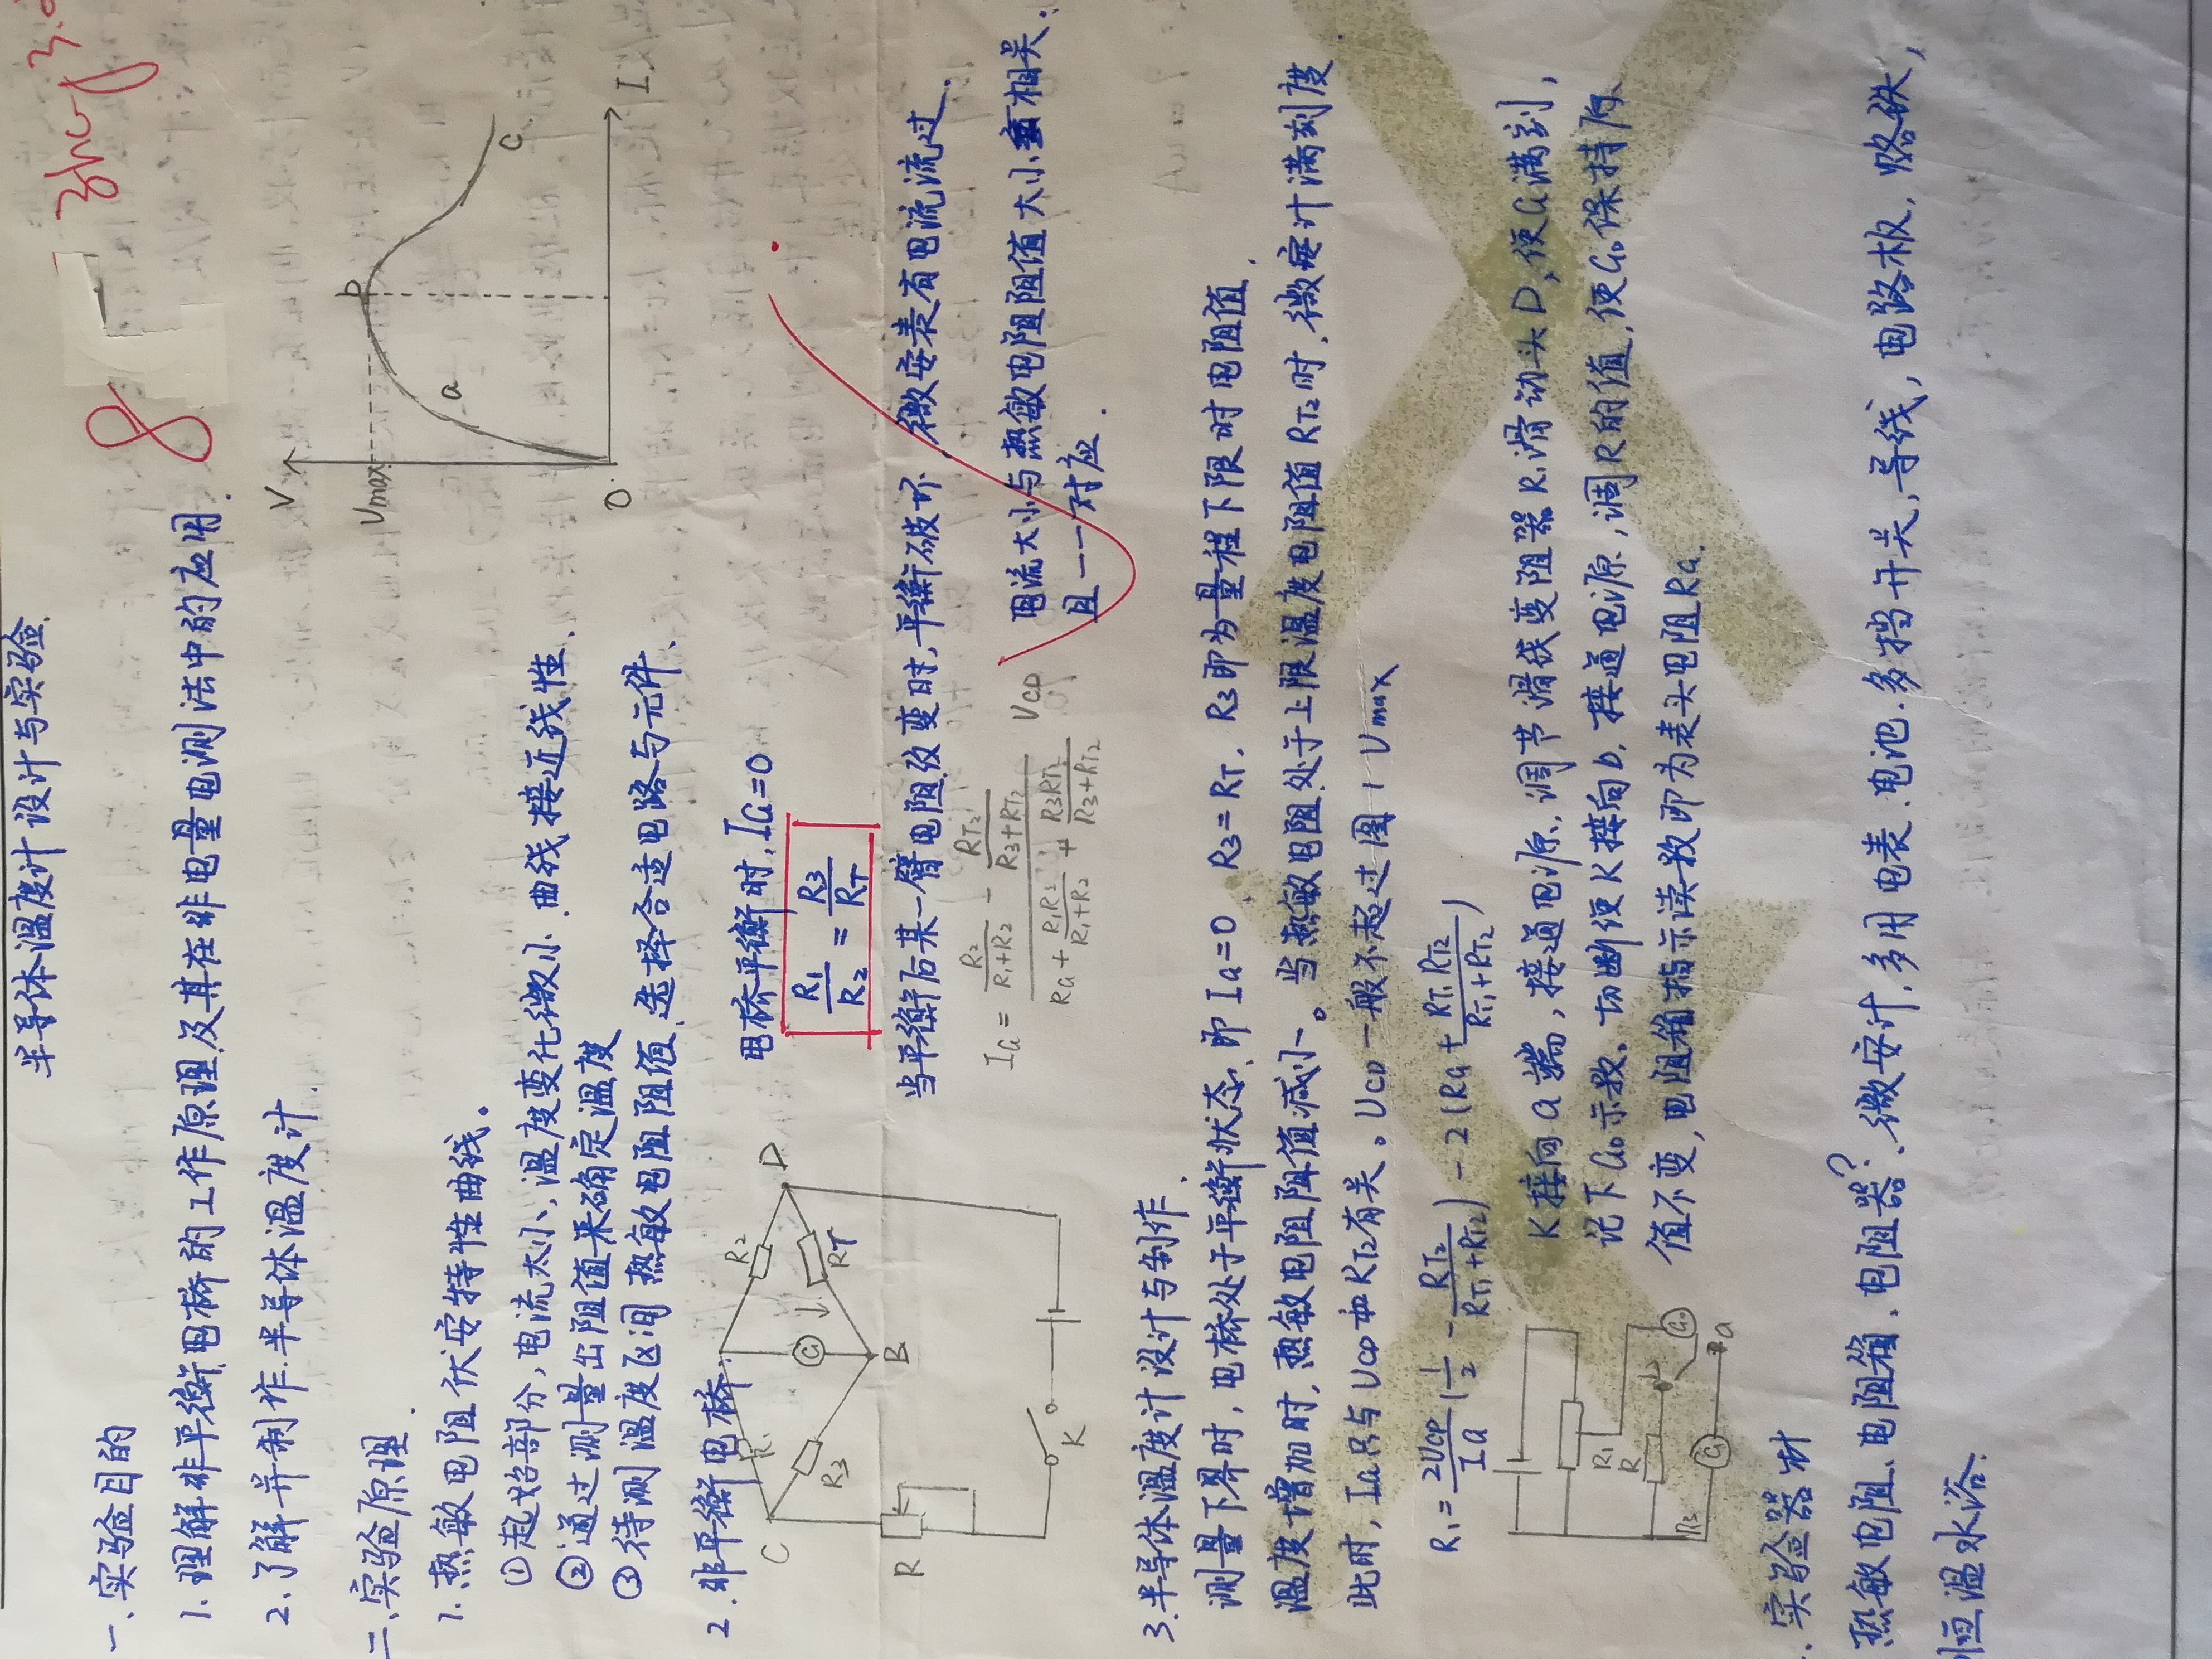 半导体温度计设计与实验.
8
一.实验目的
1.理解非平衡电桥的工作原理及其在非电量电测法中的应用.
2.了解并制作半导体温度计.
V
Vmax
b
a
c
O
I
二.实验原理.
1.热敏电阻伏安特性曲线。
①起始部分,电流太小,温度变化微小.曲线接近线性.
②通过测量出阻值来确定温度
③待测温度区间热敏电阻阻值.选择合适电路与元件.
2.非平衡电桥.
C
R1
R2
D
R3
G
RT
B
R
K
电桥平衡时,IG=0
R1/R2 = R3/RT
当平衡后某一臂电阻改变时,平衡破坏.微安表有电流流过.
IG = (R2/(R1+R2) - RT2/(R3+RT2)) / (RG + R1R2/(R1+R2) + R3RT2/(R3+RT2)) UCD
电流大小与热敏电阻阻值大小相关.
且一一对应.
3.半导体温度计设计与制作.
测量下界时,电桥处于平衡状态,即IG=0,R3=RT.R3即为量程下限时电阻值.
温度增加时,热敏电阻阻值减小。当热敏电阻处于上限温度电阻值RT2时,微安计满刻度.
此时,IG只与UCD和RT2有关。UCD一般不超过图1 Vmax
R1 = 2UCD/IG (1/2 - RT2/(RT1+RT2)) - 2(RG + RT1RT2/(RT1+RT2))
R1
R
b
R3
G
G0
a
K接向a端,接通电源,调节滑线变阻器R1滑动头D,使G满刻,
记下G0示数.切断使K接向b,接通电源,调R的值,使G0保持原
值不变,电阻箱指示读数即为表头电阻RG.
.实验器材
热敏电阻、电阻箱、电阻器?、微安计,多用电表.电池.多挡开关,导线,电路板,烙铁,
恒温水浴.